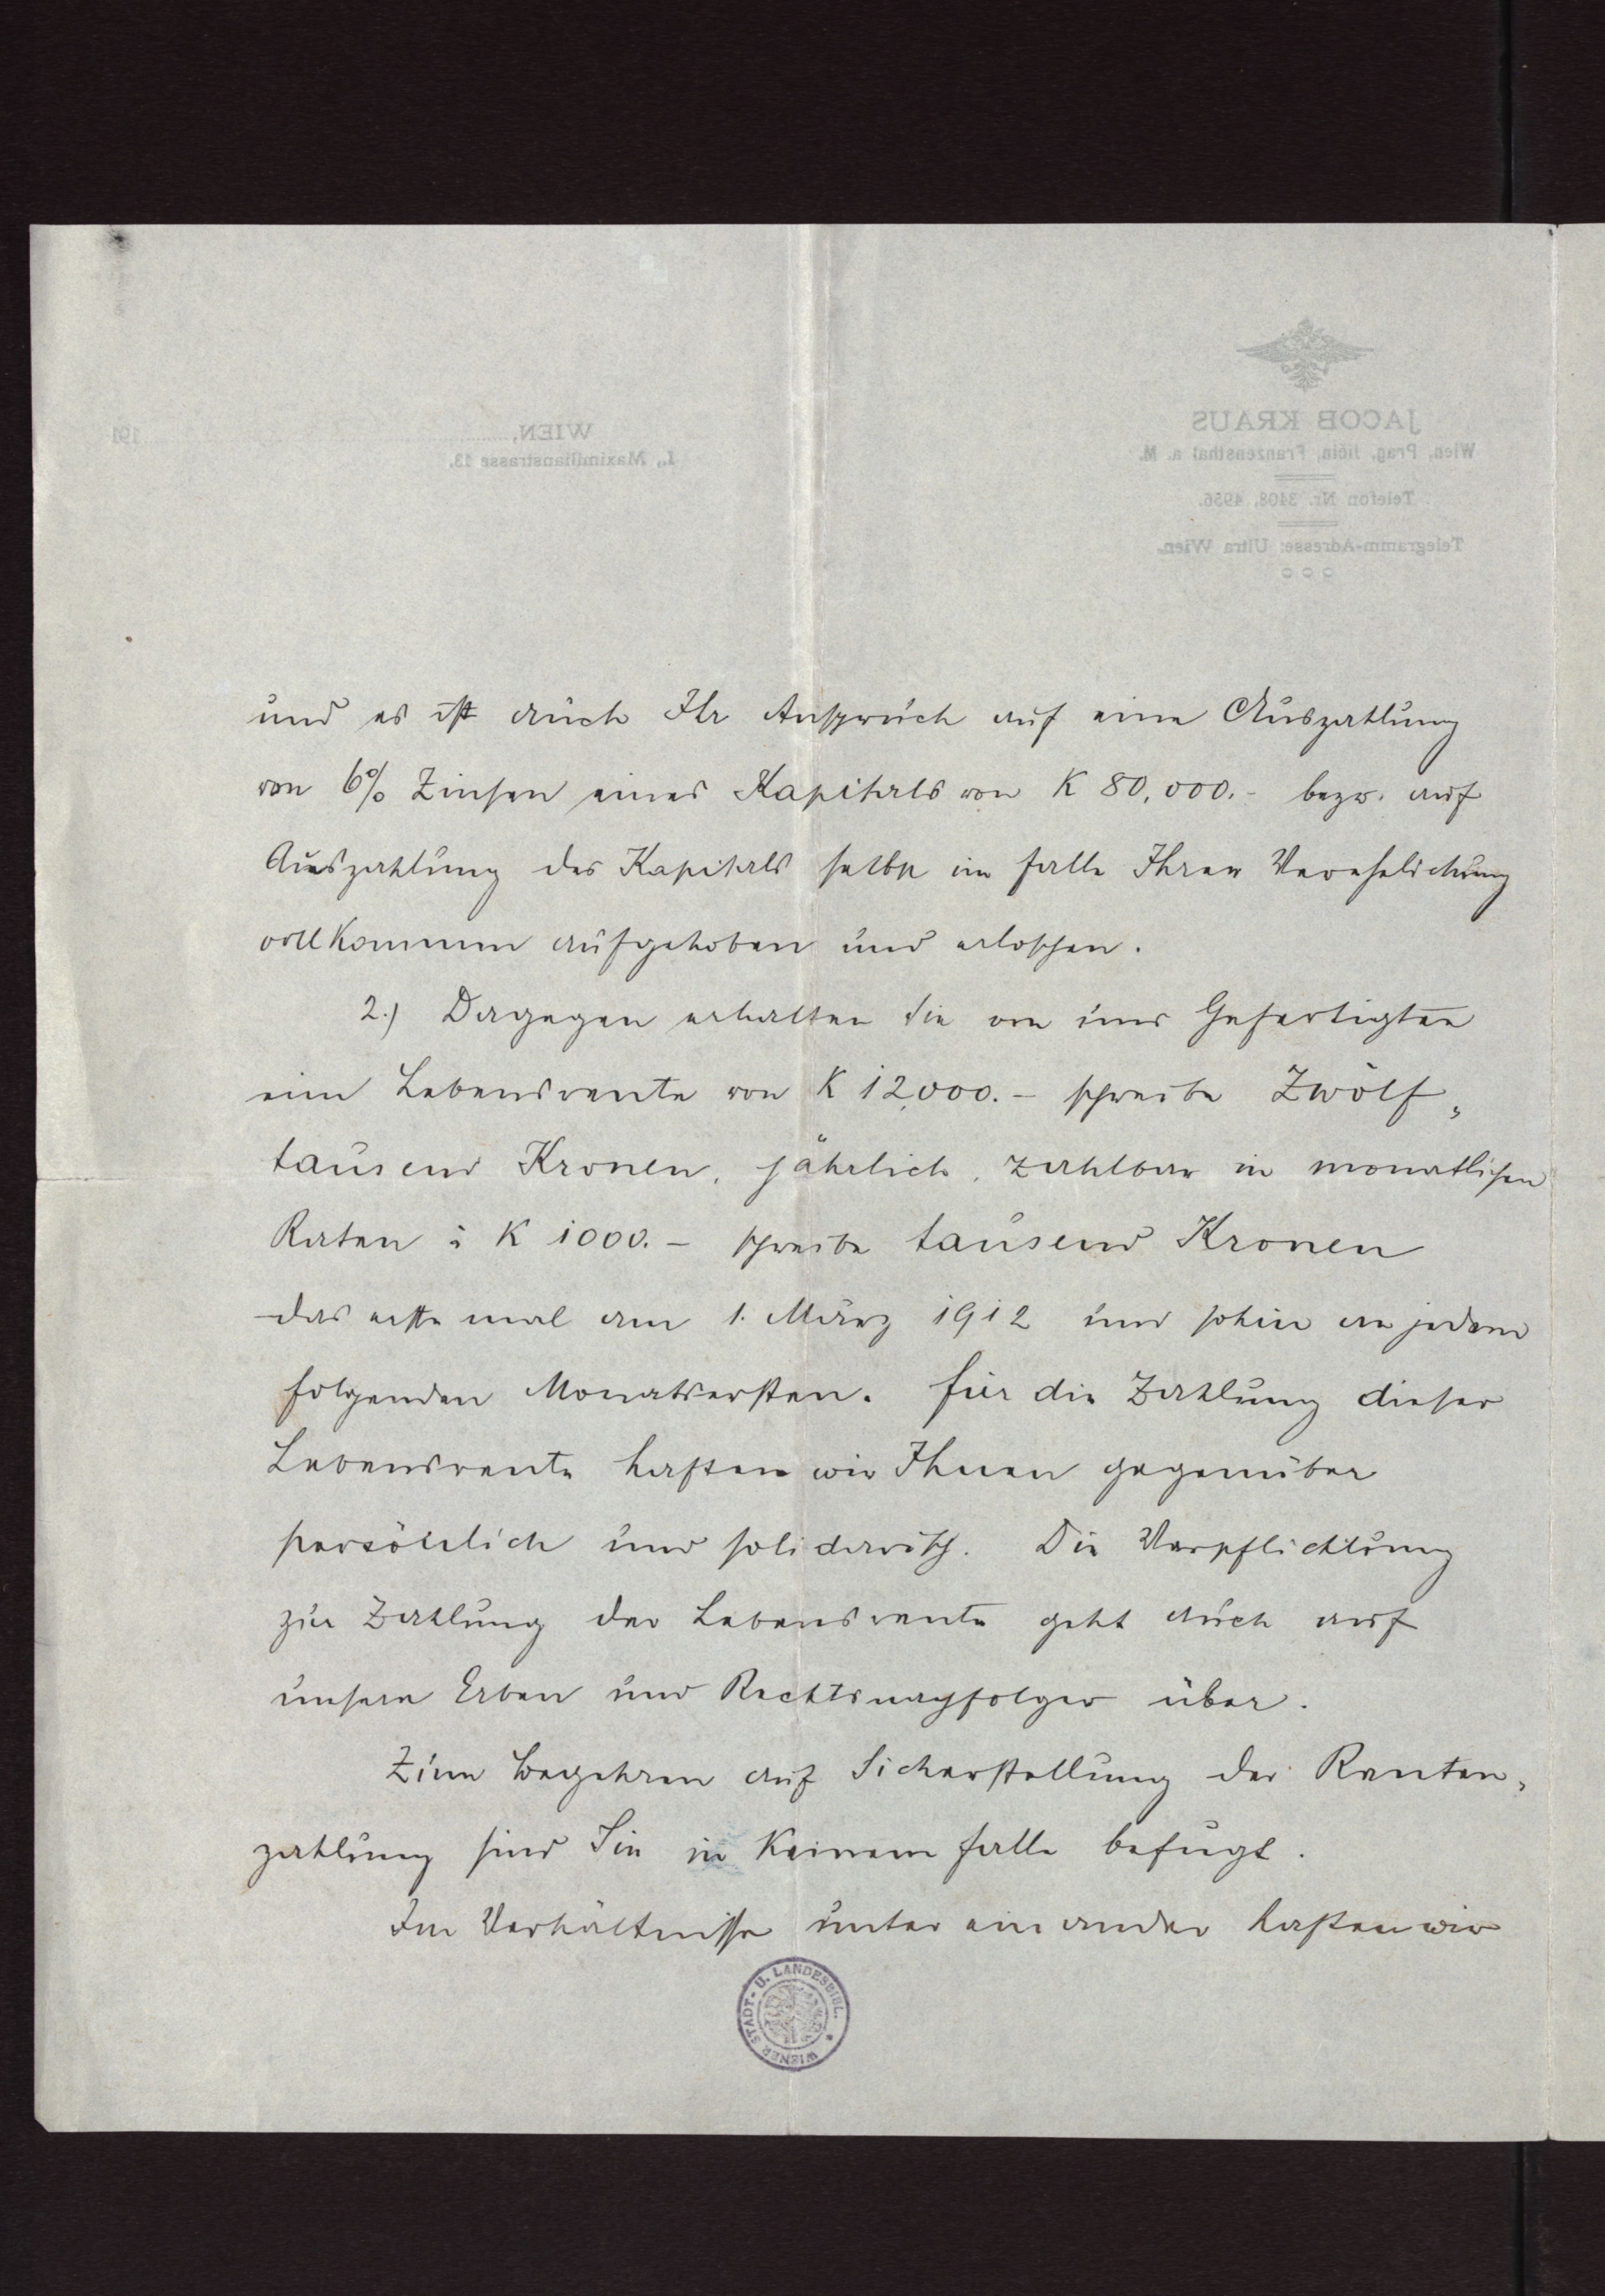 JACOB KRAUS
Wien, Prag, Jičin, Franzensthal a. M.
Telefon Nr. 3408, 4956.
Telegramm-Adresse: Ultra Wien.
WIEN, 191
I., Maximilianstrasse 13.
und es ist auch Ihr Anspruch auf eine Auszahlung
von 6% Zinsen eines Kapitals von K 80,000.- bezw. auf
Auszahlung des Kapitals selbst im Falle Ihrer Verehelichung
vollkommen aufgehoben und erloschen.
2.) Dagegen erhalten Sie von uns Gefertigten
eine Lebensrente von K 12,000.- schreibe Zwölf-
tausend Kronen, jährlich, zahlbar in monatlichen
Raten à K 1000.- schreibe tausend Kronen
das erste mal am 1. März 1912 und sohin an jedem
folgenden Monatsersten. Für die Zahlung dieser
Lebensrente haften wir Ihnen gegenüber
persönlich und solidarisch. Die Verpflichtung
zur Zahlung der Lebensrente geht auch auf
unsere Erben und Rechtsnachfolger über.
Zum Begehren auf Sicherstellung der Renten-
zahlung sind Sie in keinem Falle befugt.
Im Verhältnisse unter einander haften wir
WIENER STADT- U. LANDESBIBL.